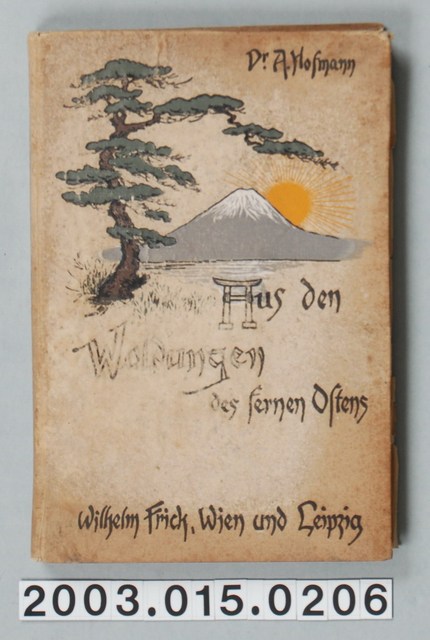 Dr. A. Hofmann
Aus den
Waldungen
des fernen Ostens
Wilhelm Frick, Wien und Leipzig
2003.015.0206